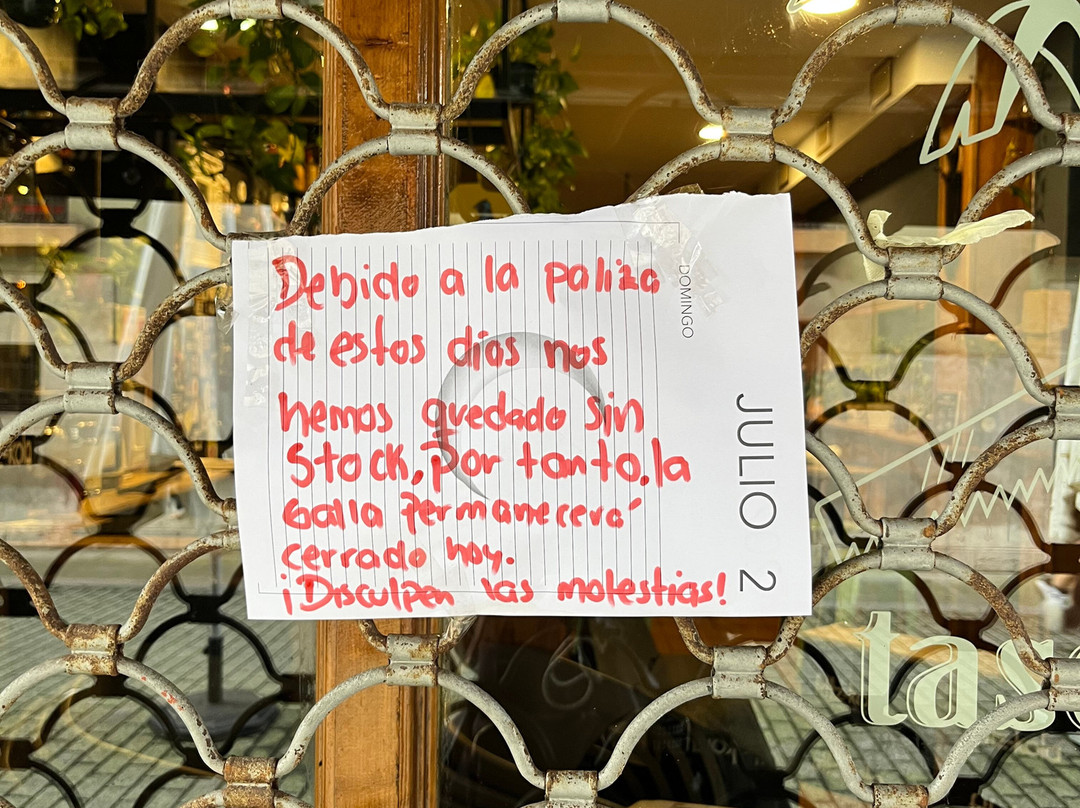 Debido a la paliza
de estos dias nos
hemos quedado sin
Stock, por tanto, la
Galla permanecerá
cerrado hoy.
¡Disculpen las molestias!
DOMINGO
JULIO 2
tas